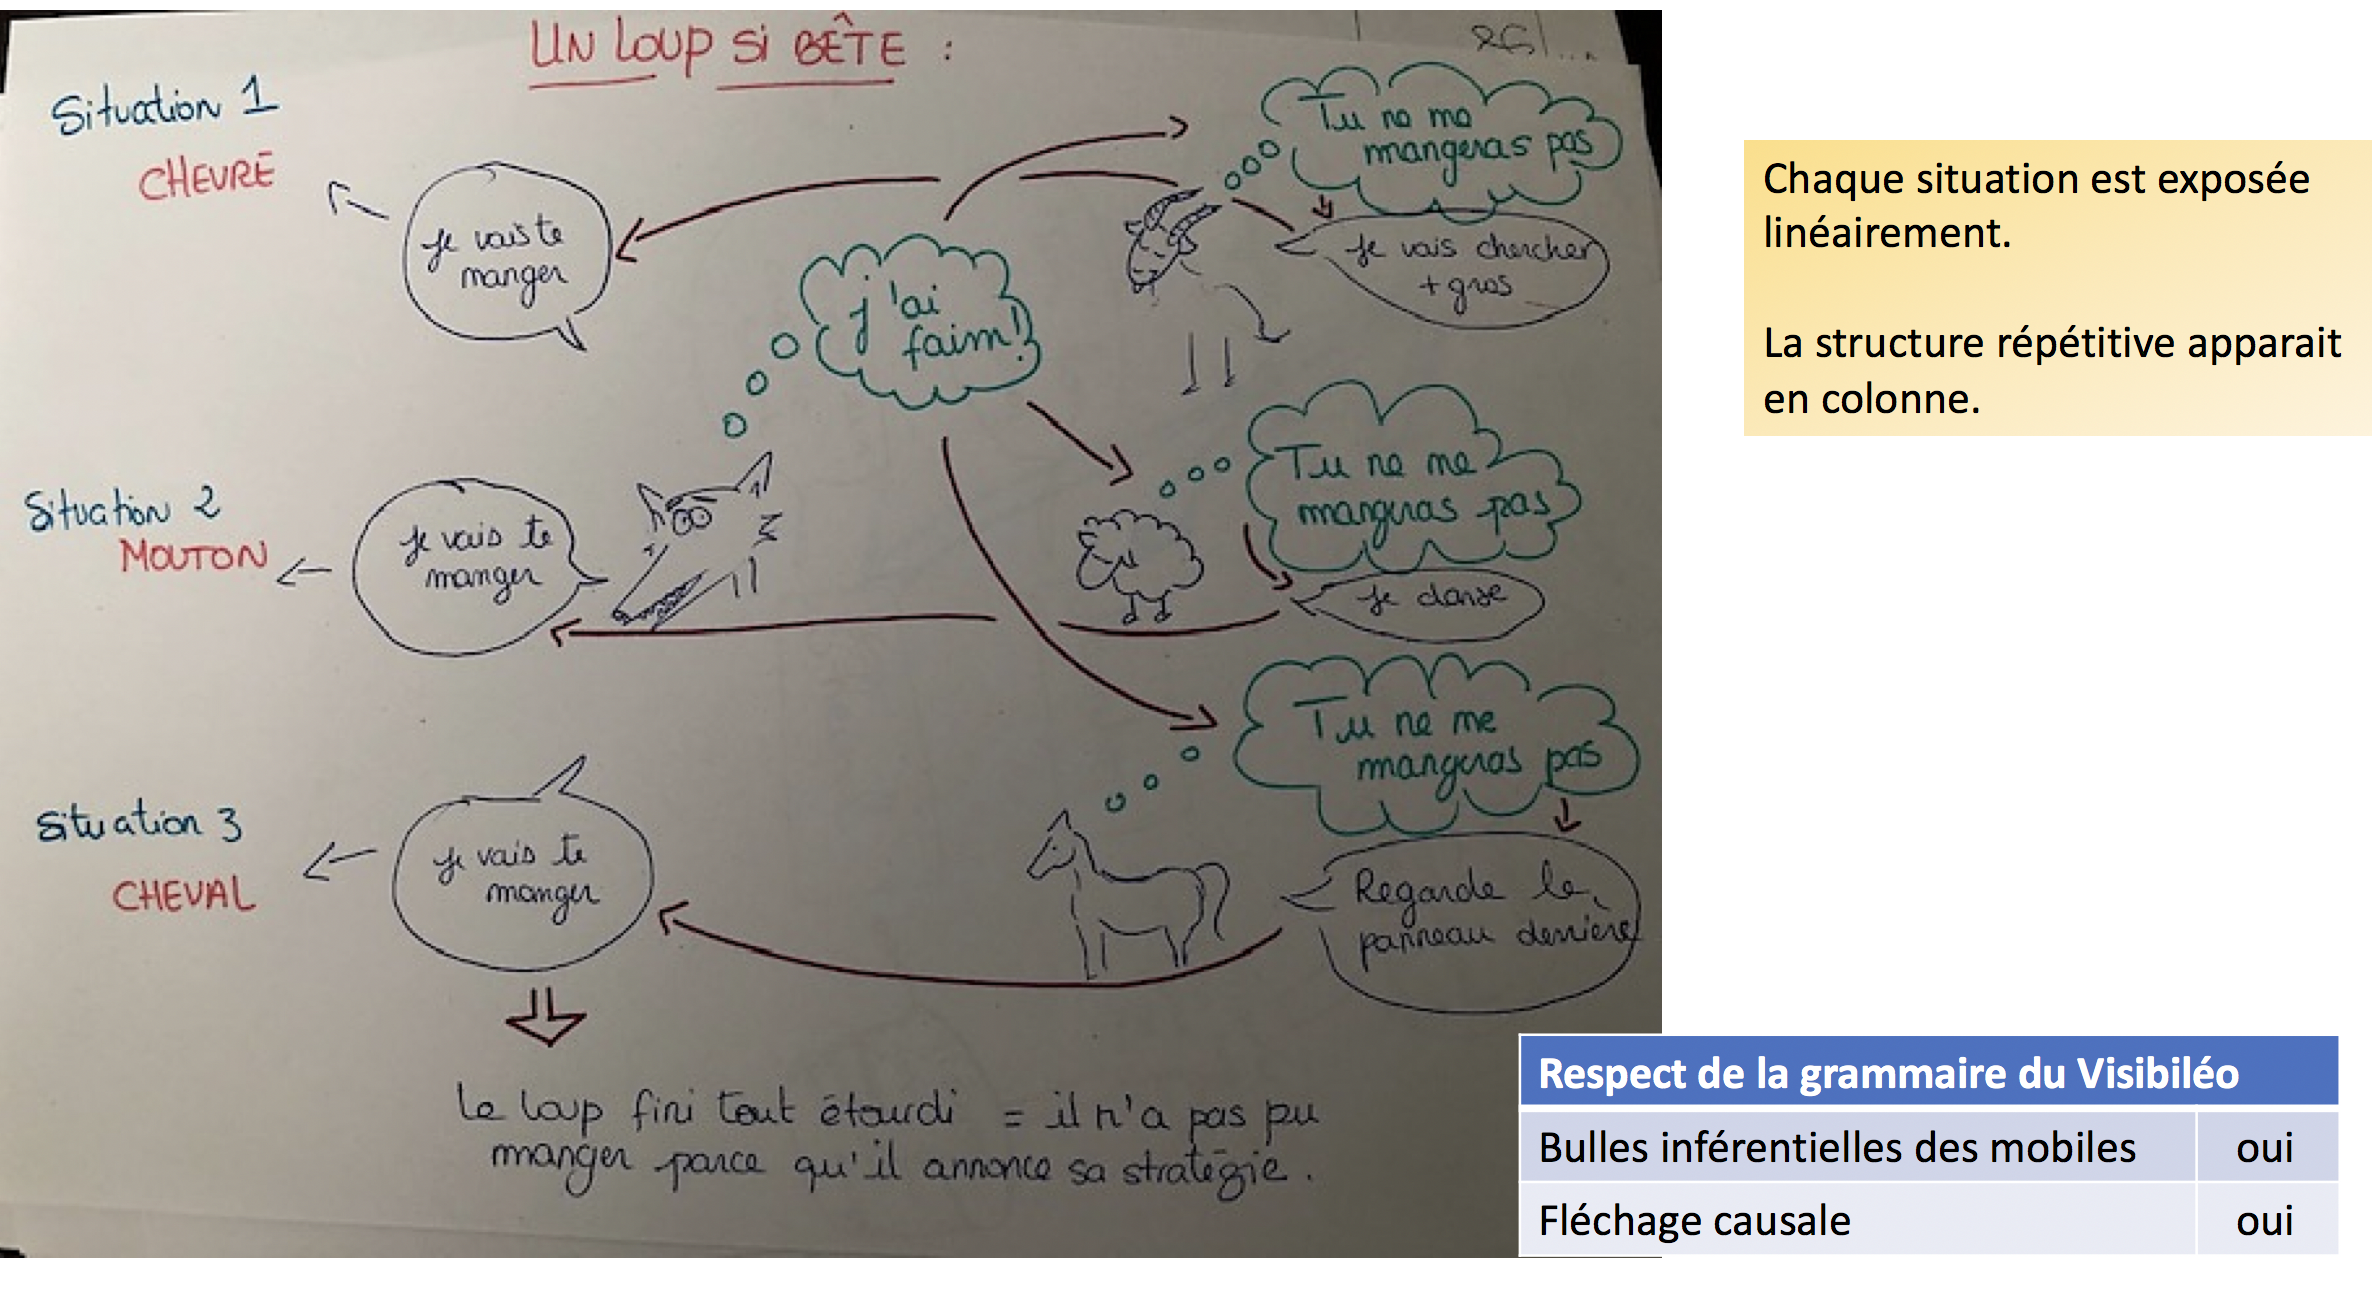 UN LOUP Si BÊTE :
Situation 1
CHEVRE
Je vais te
manger
j'ai
faim!
Tu ne me
mangeras pas
Je vais chercher
+ gros
Situation 2
MOUTON
Je vais te
manger
Tu ne me
mangeras pas
Je danse
Situation 3
CHEVAL
Je vais te
manger
Tu ne me
mangeras pas
Regarde le
panneau derrière
Le loup fini tout étourdi = il n'a pas pu
manger parce qu'il annonce sa stratégie.
Chaque situation est exposée
linéairement.
La structure répétitive apparait
en colonne.
Respect de la grammaire du Visibiléo
Bulles inférentielles des mobiles oui
Fléchage causale oui